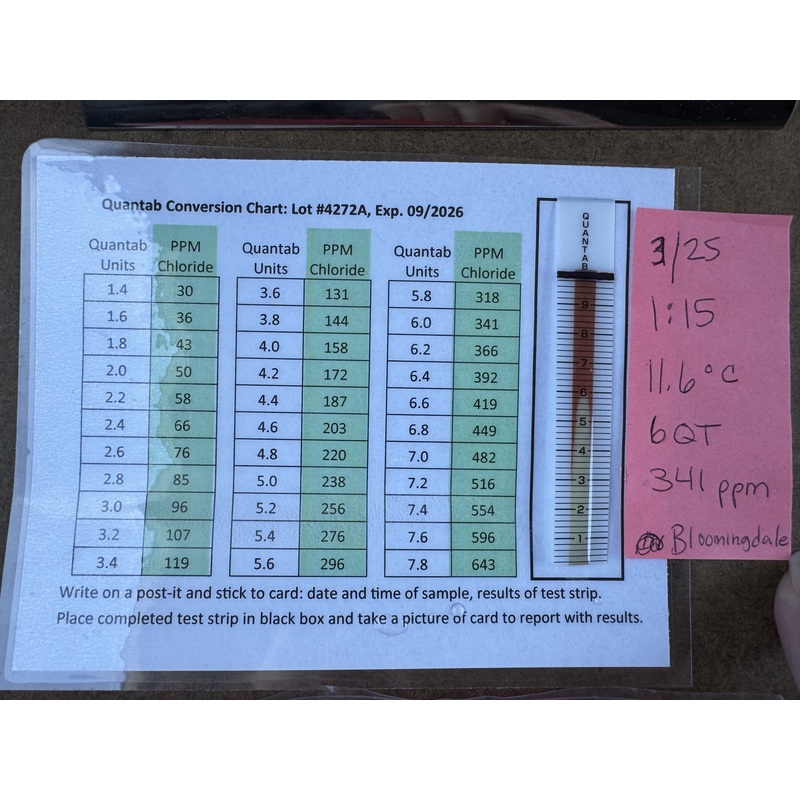 Quantab Conversion Chart: Lot #4272A, Exp. 09/2026
Quantab Units PPM Chloride Quantab Units PPM Chloride Quantab Units PPM Chloride
1.4 30 3.6 131 5.8 318
1.6 36 3.8 144 6.0 341
1.8 43 4.0 158 6.2 366
2.0 50 4.2 172 6.4 392
2.2 58 4.4 187 6.6 419
2.4 66 4.6 203 6.8 449
2.6 76 4.8 220 7.0 482
2.8 85 5.0 238 7.2 516
3.0 96 5.2 256 7.4 554
3.2 107 5.4 276 7.6 596
3.4 119 5.6 296 7.8 643
Write on a post-it and stick to card: date and time of sample, results of test strip.
Place completed test strip in black box and take a picture of card to report with results.
QUANTAB
9
8
7
6
5
4
3
2
1
3/25
1:15
11.6°C
6QT
341 ppm
Bloomingdale